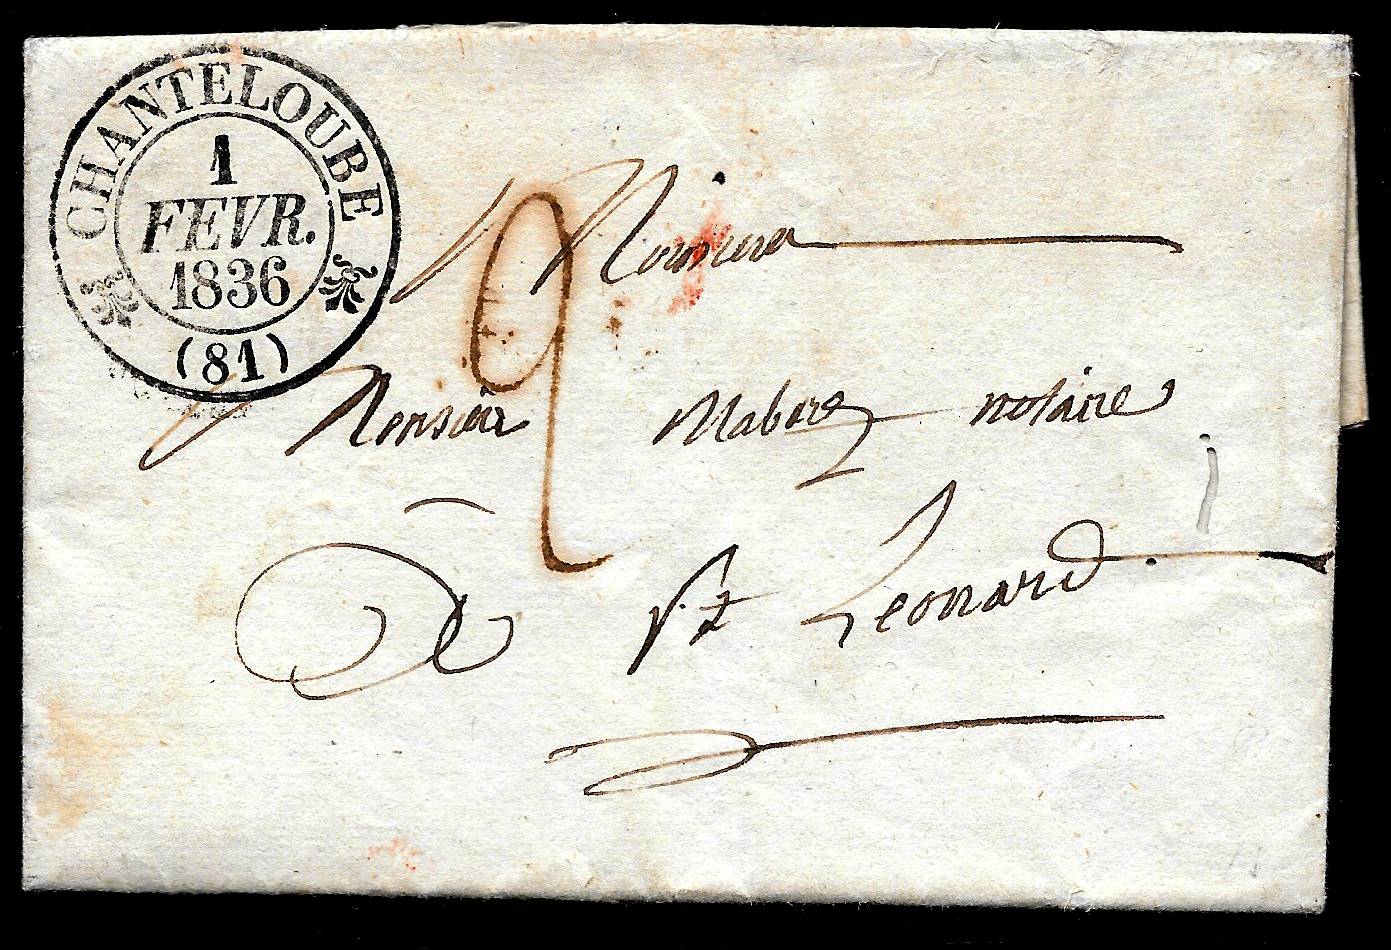 CHANTELOUBE
1
FEVR.
1836
(81)
2
Monsieur
Monsieur notaire
À St Leonard